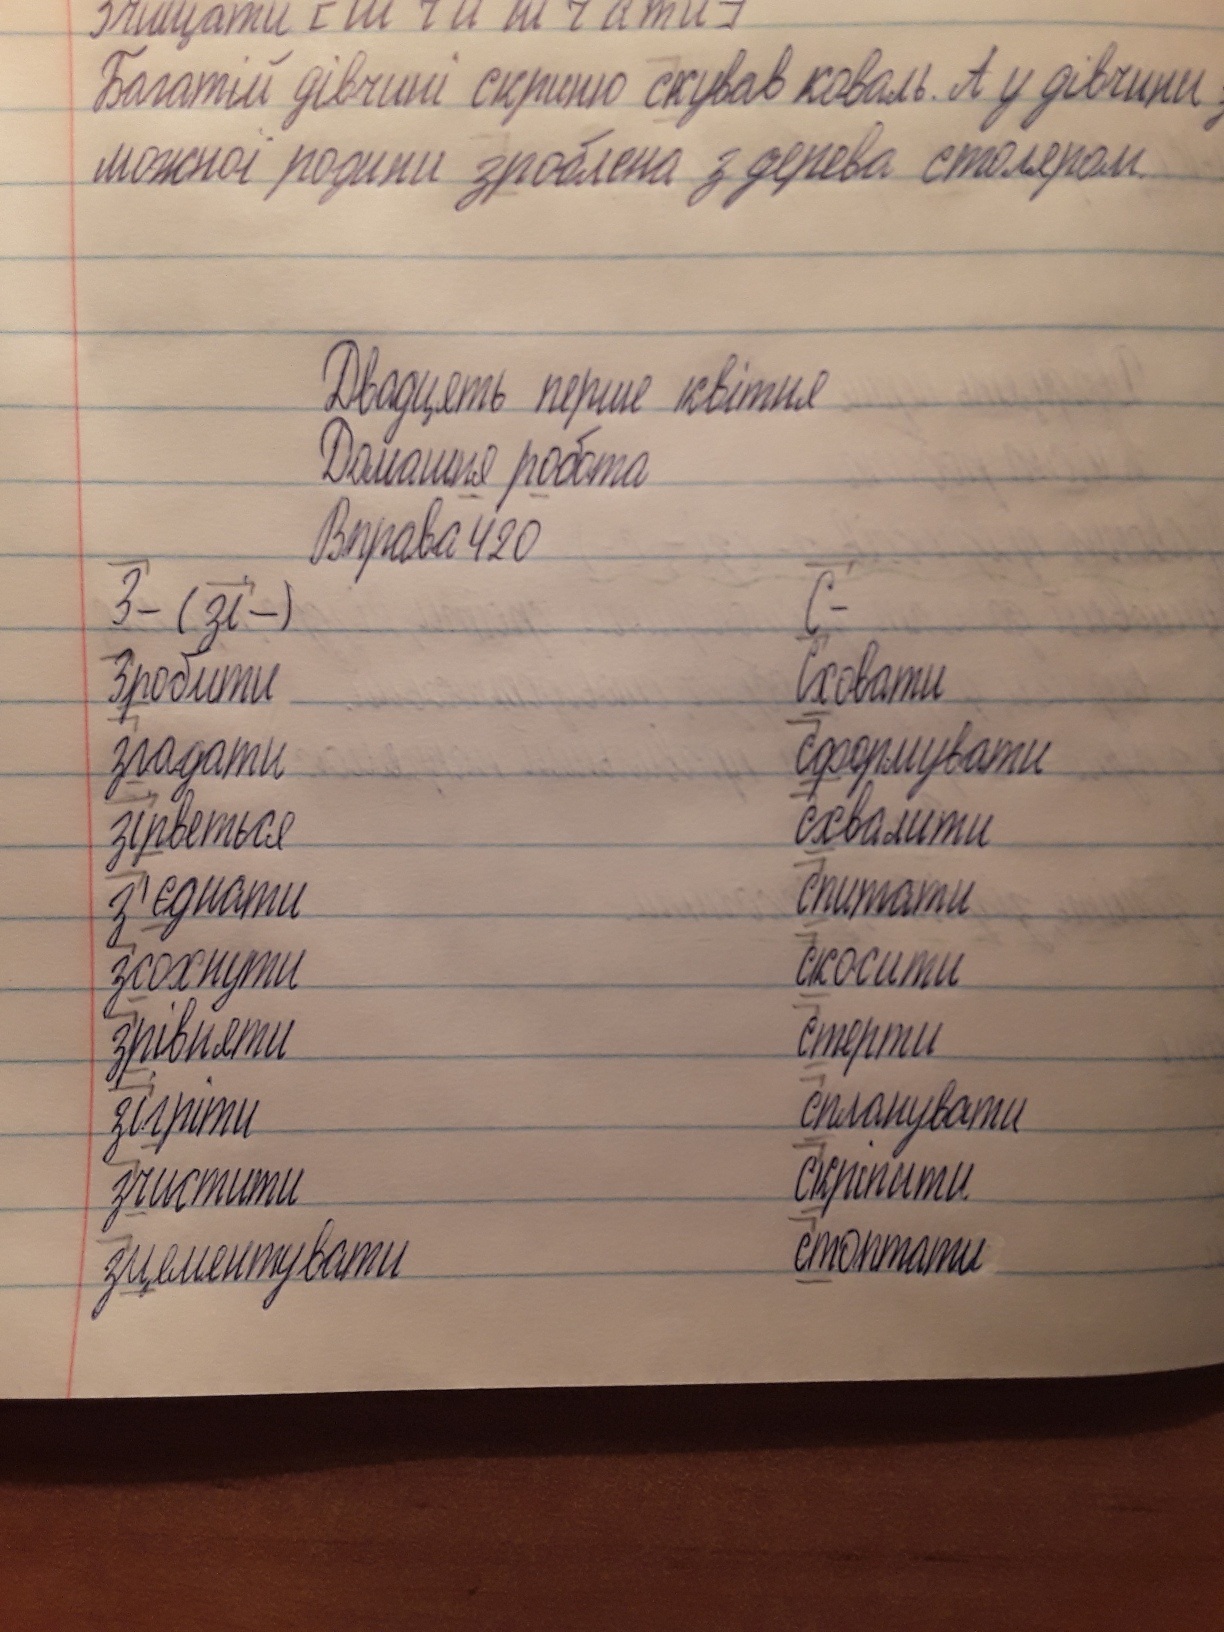 Зчищати [ш ч и ш ч а т и]
Багатій дівчині скриню скував коваль. А у дівчини з
можної родини зроблена з дерева столяром.
Двадцять перше квітня
Домашня робота
Вправа 420
З- (зі-) С-
Зробити Сховати
згадати сформувати
зірветься схвалити
з'єднати спитати
зсохнути скосити
зрівняти стерти
зігріти спланувати
зчистити скріпити
зцементувати стоптати